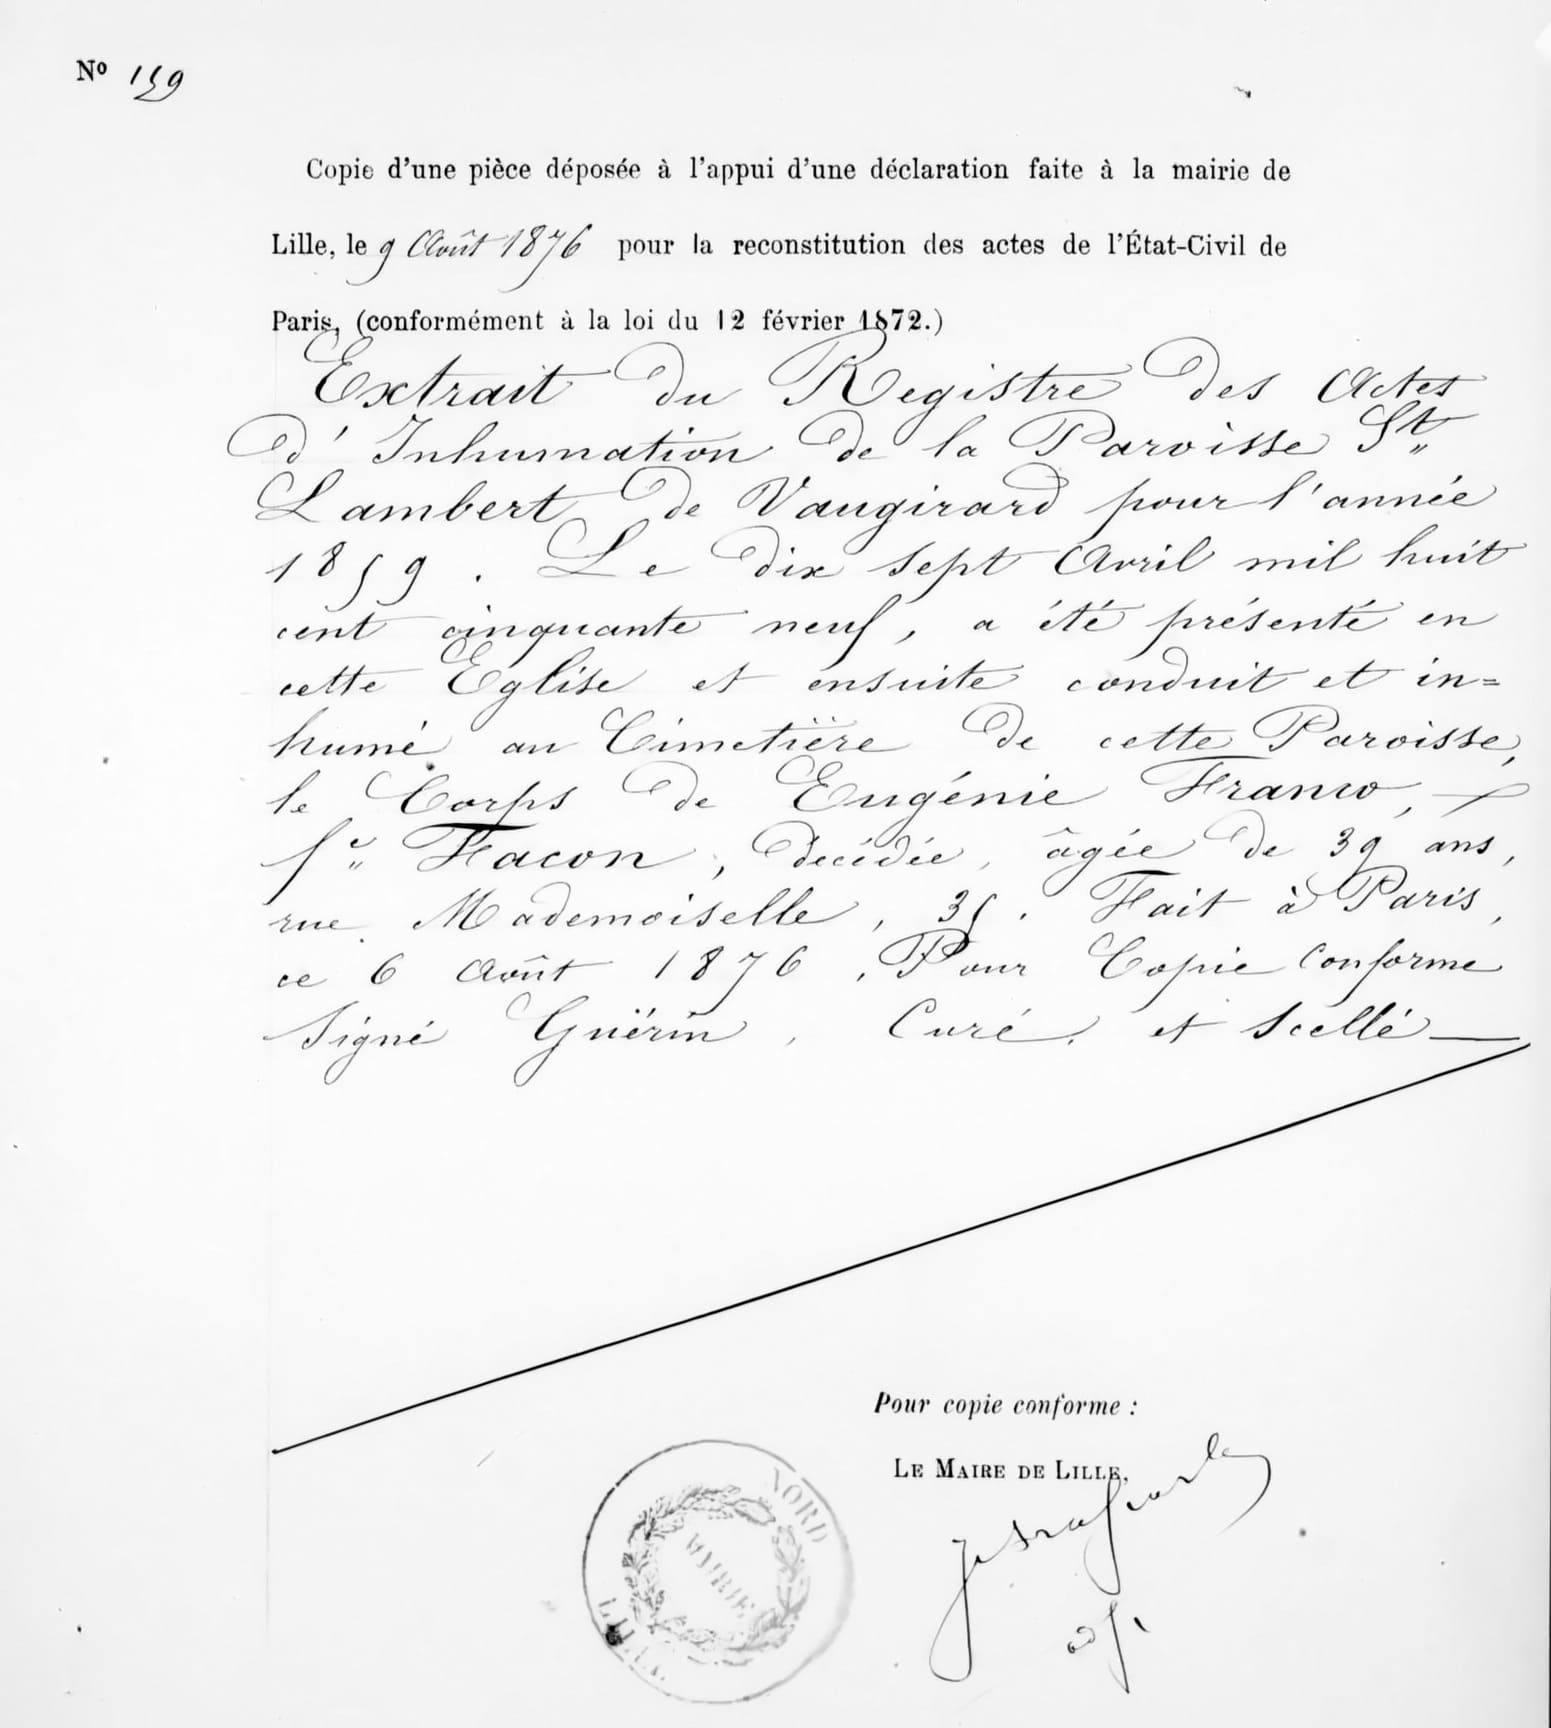 Nº 159
Copie d'une pièce déposée à l'appui d'une déclaration faite à la mairie de
Lille, le 9 Août 1876 pour la reconstitution des actes de l'État-Civil de
Paris, (conformément à la loi du 12 février 1872.)
Extrait du Registre des Actes
d'Inhumation de la Paroisse St
Lambert de Vaugirard pour l'année
1859. Le dix sept Avril mil huit
cent cinquante neuf, a été présenté en
cette Eglise et ensuite conduit et in=
humé au Cimetière de cette Paroisse,
le Corps de Eugénie Franco,
fe Facon, décédée, âgée de 39 ans,
rue Mademoiselle, 35. Fait à Paris,
ce 6 Août 1876. Pour Copie Conforme
Signé Guérin, Curé, et Scellé
Pour copie conforme :
LE MAIRE DE LILLE,
adj.
NORD
MAIRIE
LILLE